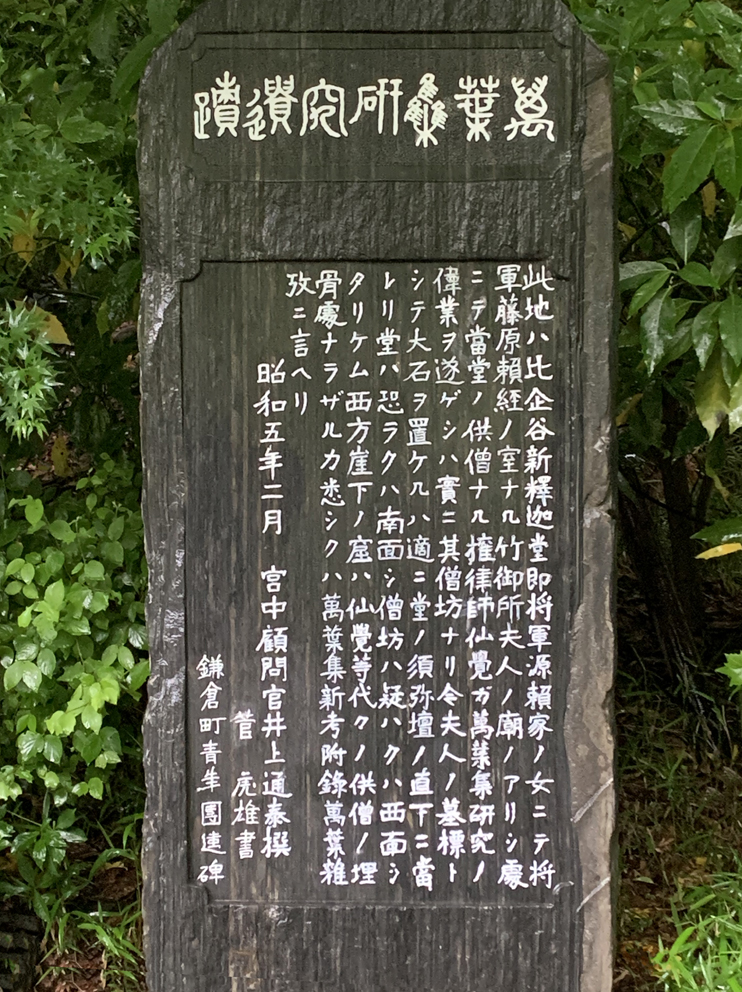 萬葉集研究遺蹟
此地ハ比企谷新釋迦堂即将軍源頼家ノ女ニテ将
軍藤原頼経ノ室ナル竹御所夫人ノ廟ノアリシ處
ニテ當堂ノ供僧ナル権律師仙覺ガ萬葉集研究ノ
偉業ヲ遂ゲシハ實ニ其僧坊ナリ今夫人ノ墓標ト
シテ大石ヲ置ケルハ適ニ堂ノ須弥壇ノ直下ニ當
レリ堂ハ恐ラクハ南面シ僧坊ハ疑ハクハ西面シ
タリケム西方崖下ノ窟ハ仙覺等代々ノ供僧ノ埋
骨處ナラザルカ悉シクハ萬葉集新考附錄萬葉雜
攷ニ言ヘリ
昭和五年二月 宮中顧問官井上通泰撰
菅 虎雄書
鎌倉町青年團建碑